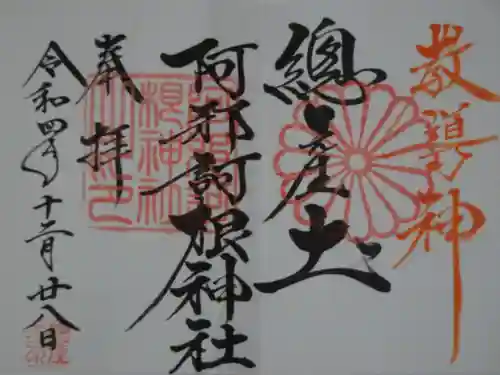 教導神
總産土
阿邪訶根神社
奉拝
令和四年十二月廿八日